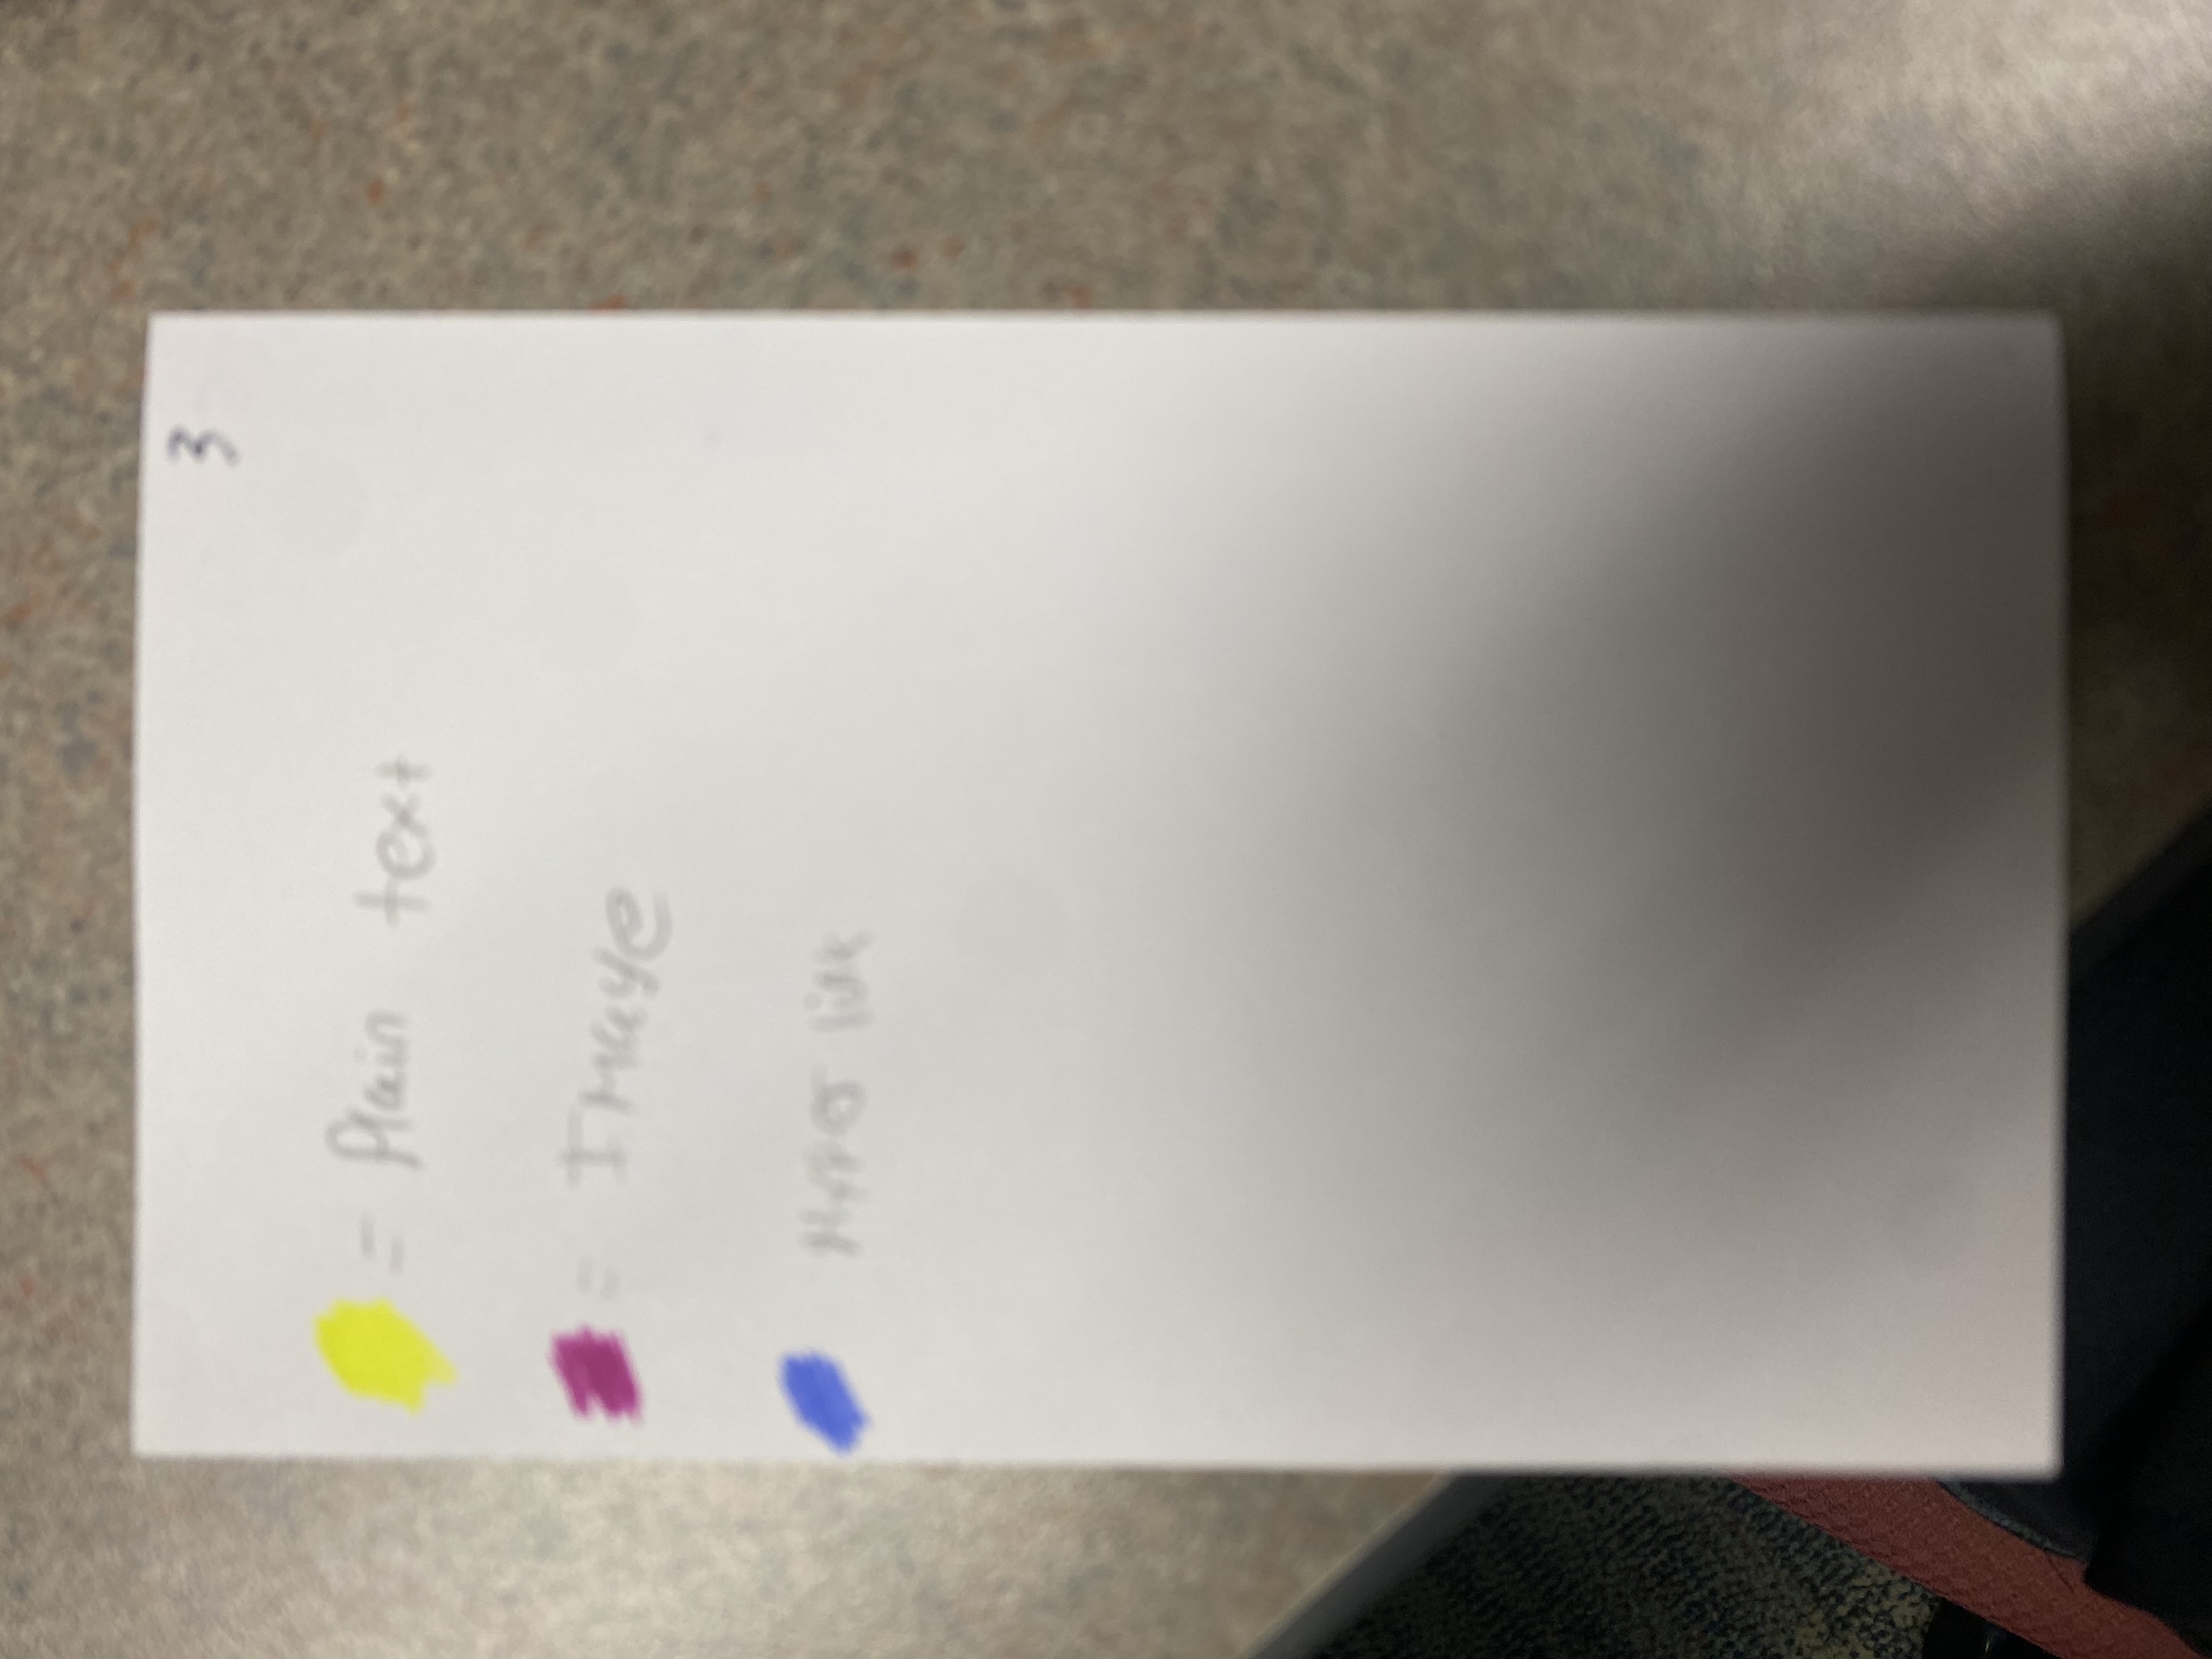 3
= Plain text
= Image
Hyper link